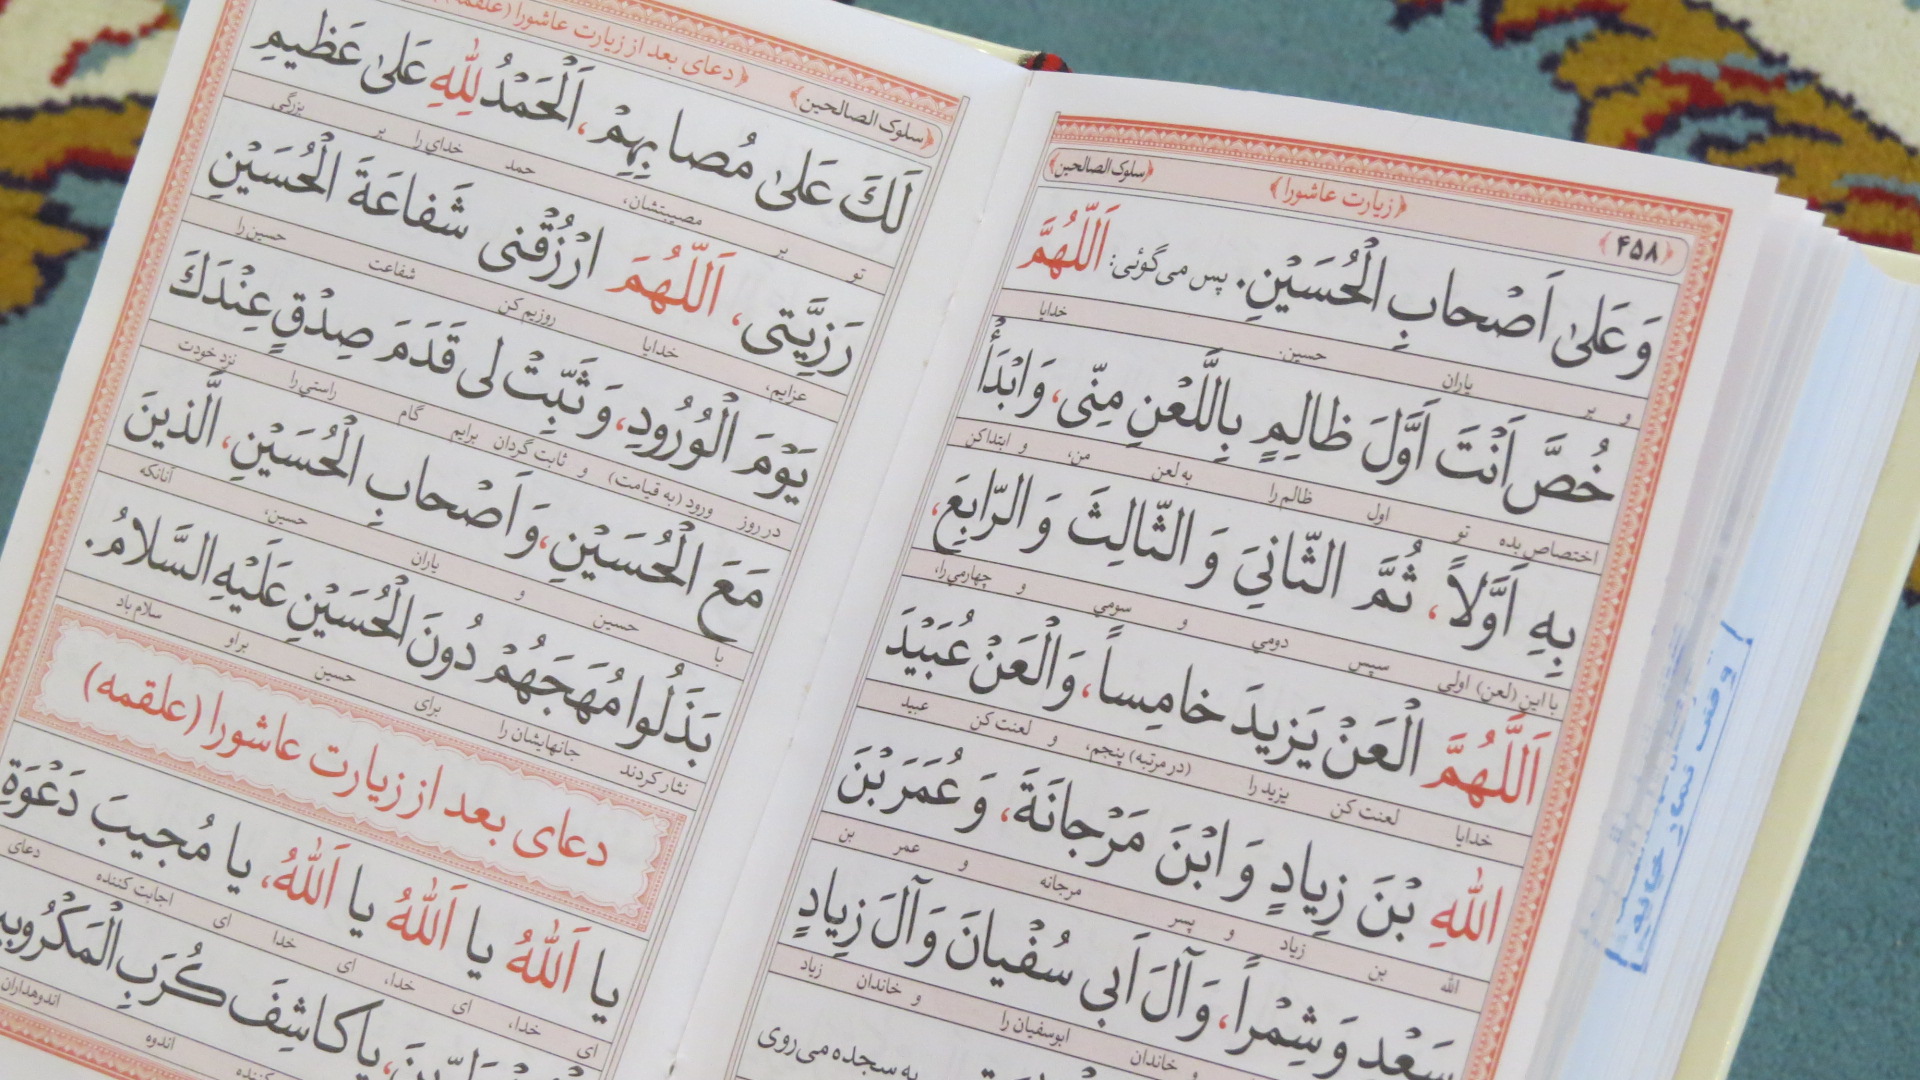 ﴿۴۵۸﴾ ﴿زیارت عاشورا﴾ ﴿سلوک الصالحین﴾
وَعَلىٰ اَصْحابِ الْحُسَيْنِ. پس می‌گوئی: اَللّٰهُمَّ
و بر یاران حسین. خدایا
خُصَّ اَنْتَ اَوَّلَ ظالِمٍ بِاللَّعْنِ مِنّى، وَابْدَأْ
اختصاص بده تو اول ظالم را به لعن من، و ابتدا کن
بِهِ اَوَّلاً، ثُمَّ الثّانِيَ وَ الثّالِثَ وَ الرّابِعَ،
با این (لعن) اولی سپس دومي و سومي و چهارمي را،
اَللّٰهُمَّ الْعَنْ يَزيدَ خامِساً، وَالْعَنْ عُبَيْدَ
خدایا لعنت کن یزید را (در مرتبه) پنجم، و لعنت کن عبید
اللهِ بْنَ زِيادٍ وَ ابْنَ مَرْجانَةَ، وَ عُمَرَ بْنَ
الله بن زیاد و پسر مرجانه و عمر بن
سَعْدٍ وَ شِمْراً، وَ آلَ اَبى سُفْيانَ وَ آلَ زِيادٍ
خاندان ابوسفیان را و خاندان زیاد
به سجده می‌روی
﴿سلوک الصالحین﴾ ﴿دعای بعد از زیارت عاشورا (علقمه)
لَكَ عَلىٰ مُصابِهِمْ، اَلْحَمْدُ لِلّٰهِ عَلىٰ عَظيمِ
تو بر مصیبتشان، حمد خدای را بر بزرگی
رَزِيَّتى، اَللّٰهُمَّ ارْزُقْنى شَفاعَةَ الْحُسَيْنِ
عزایم، خدایا روزیم کن شفاعت حسین را
يَوْمَ الْوُرُودِ، وَ ثَبِّتْ لى قَدَمَ صِدْقٍ عِنْدَكَ
در روز ورود (به قیامت) و ثابت گردان برایم گام راستي را نزد خودت
مَعَ الْحُسَيْنِ، وَ اَصْحابِ الْحُسَيْنِ، الَّذينَ
با حسین و یاران حسین، آنانکه
بَذَلُوا مُهَجَهُمْ دُونَ الْحُسَيْنِ عَلَيْهِ السَّلامُ.
نثار کردند جانهایشان را برای حسین بر او سلام باد
دعای بعد از زیارت عاشورا (علقمه)
يا اَللهُ يا اَللهُ يا اَللهُ، يا مُجيبَ دَعْوَةِ
ای خدا، ای خدا، ای خدا ای اجابت کننده دعای
يا كاشِفَ كُرَبِ الْمَكْرُوبي
اندوه اندوهداران
وقف نماز خانه